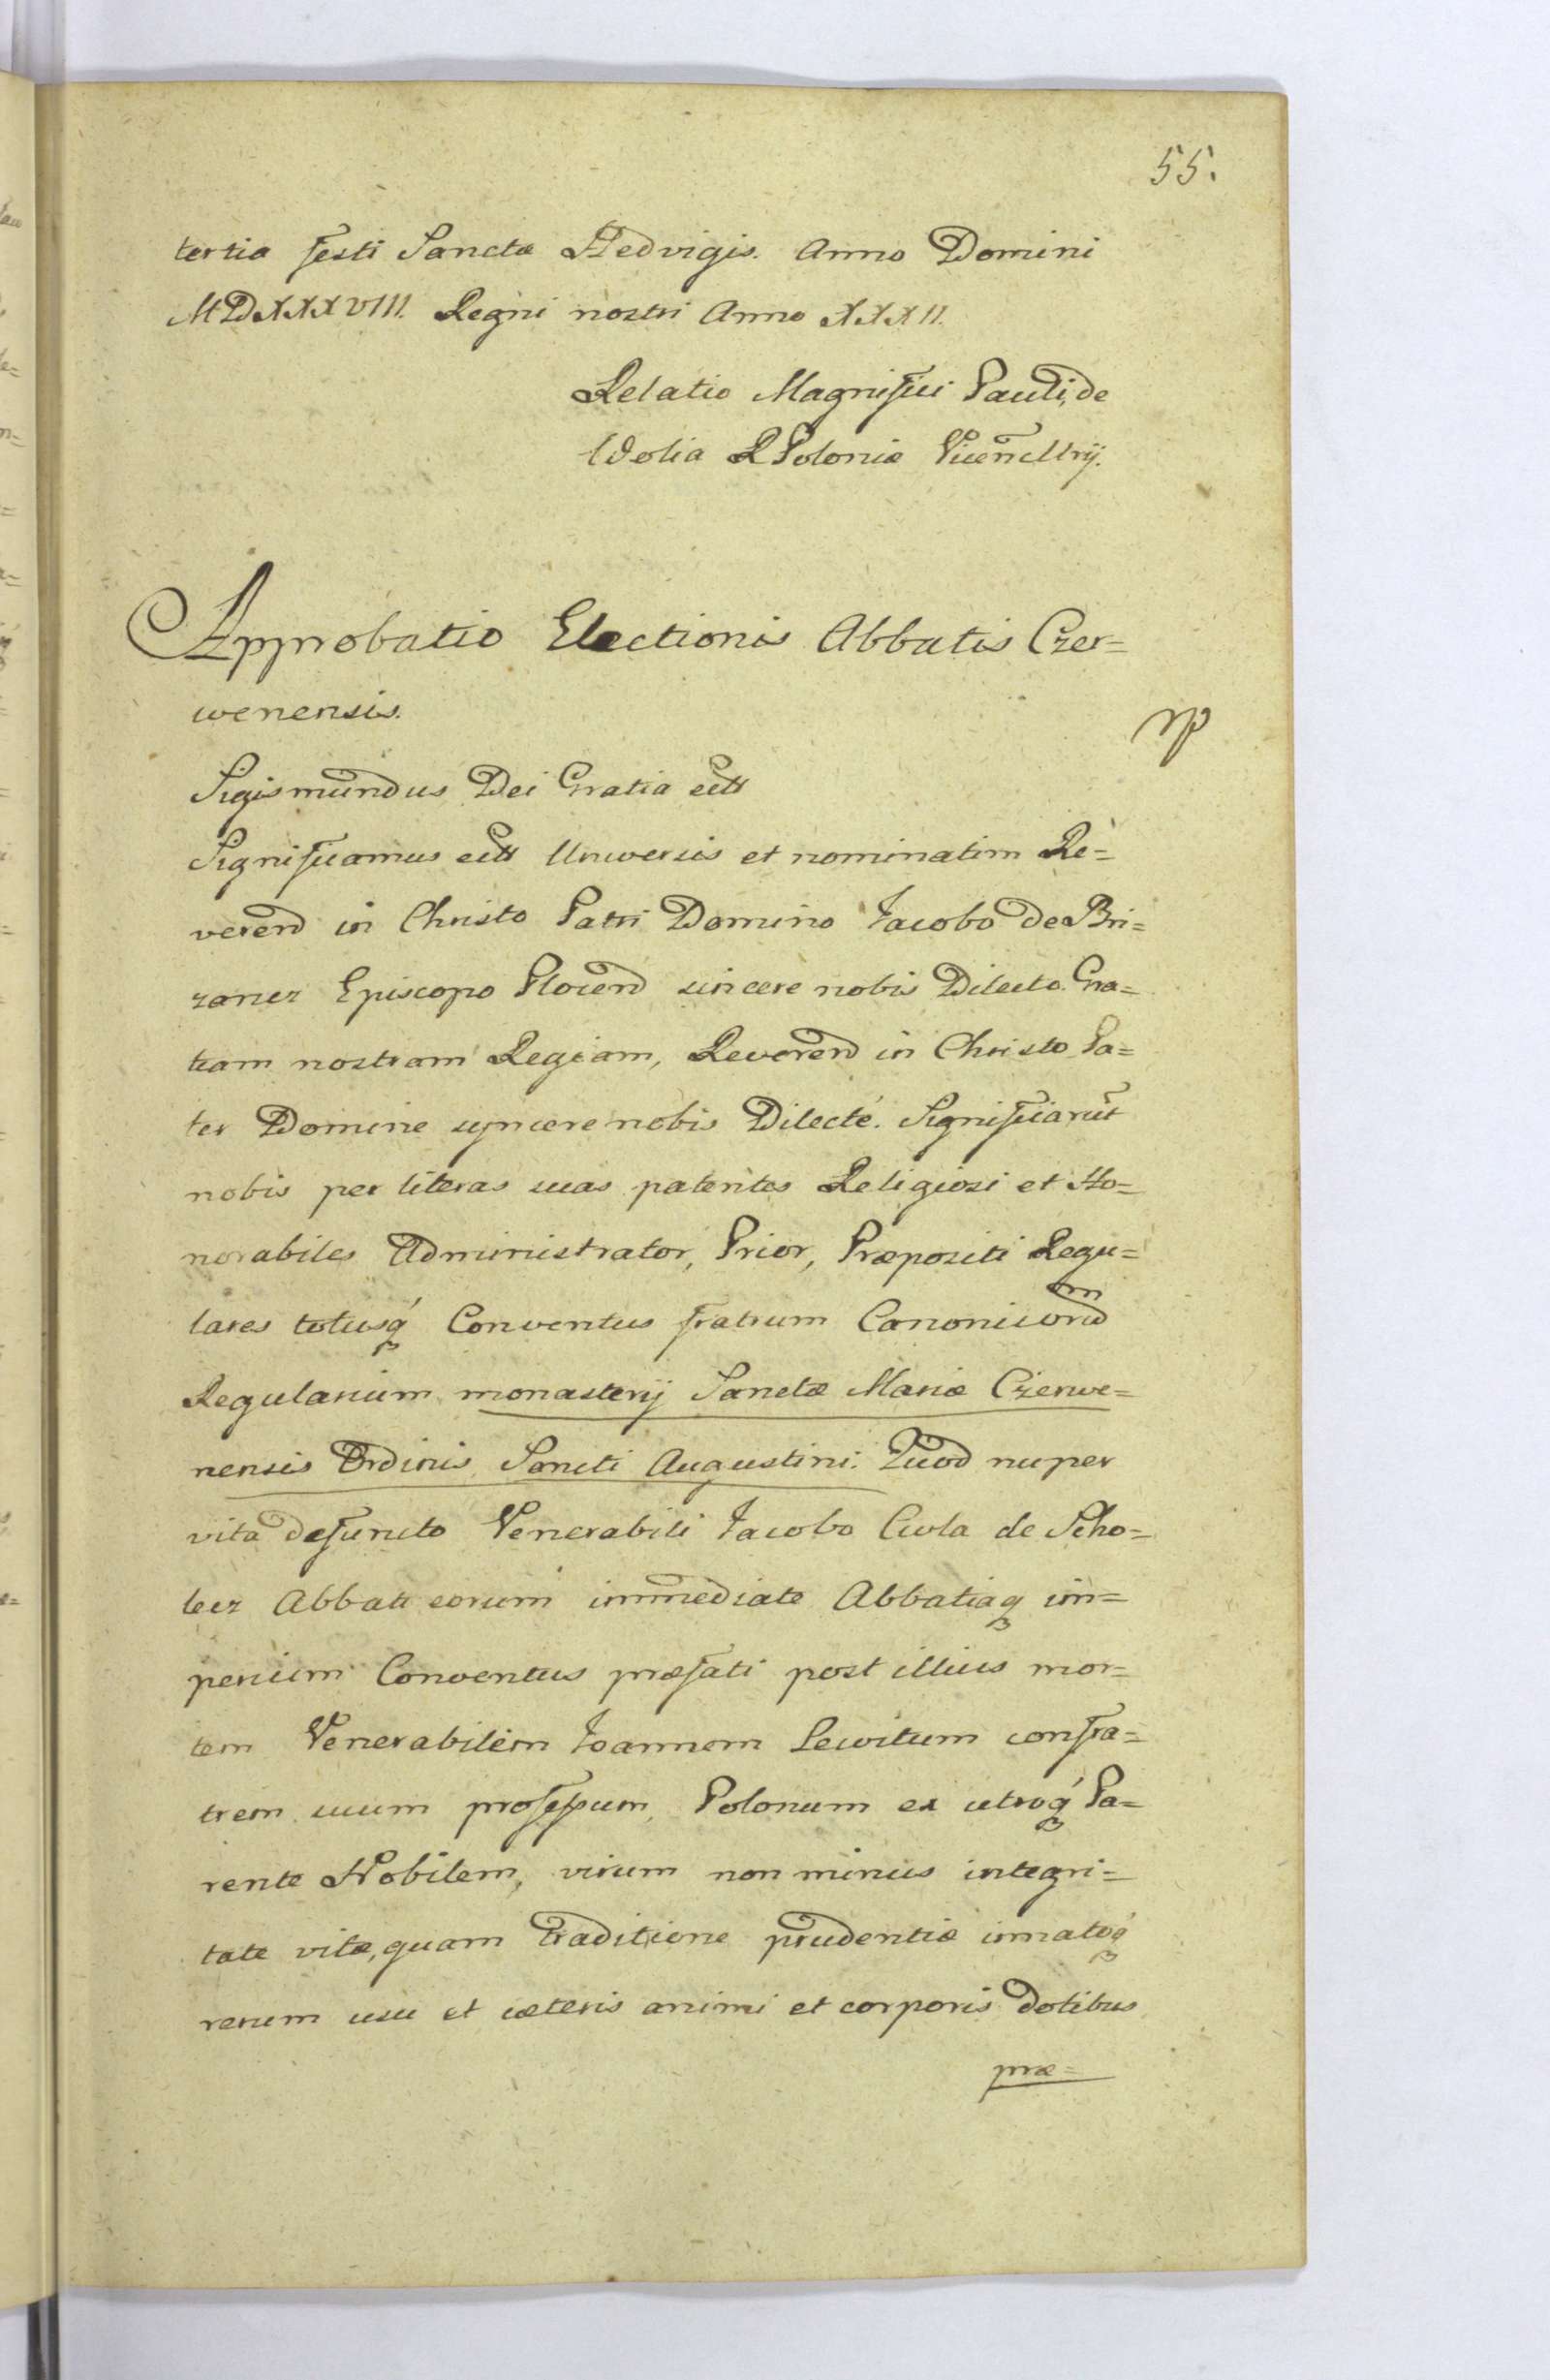 55.
tertia festi Sanctæ Hedvigis. Anno Domini
MDXXXVIII. Regni nostri Anno XXXII.
Relatio Magnifici Pauli de
Wolia R Poloniæ Vicencllrij.
Approbatio Electionis Abbatis Czer=
wenensis.
Sigismundus Dei Gratia ectt
Significamus ectt Universis et nominatim Re=
verend in Christo Patri Domino Jacobo de Bri=
zanez Episcopo Plocend sincere nobis Dilecto. Gra=
tiam nostram Regiam, Reverend in Christo Pa=
ter Domine syncere nobis Dilecte. Significarūt
nobis per literas suas patentes Religiosi et Ho=
norabiles Administrator, Prior, Præpositi Regu=
lares totusq́ Conventus fratrum Canonicorum
Regularium monasterij Sanctæ Mariæ Czerwe=
nensis Ordinis Sancti Augustini. Quod nuper
vita defuncto Venerabili Jacobo Cuola de Scho=
lecz Abbati eorum immediate Abbatiaq im=
perium Conventus præfati post illius mor=
tem Venerabilem Joannem Lewitum confra=
trem suum professum, Polonum ex utroq́ Pa=
rente Nobilem, virum non minus integri=
tate vitæ, quam traditione prudentiæ innatoq́
rerum usu et cæteris animi et corporis dotibus
præ=